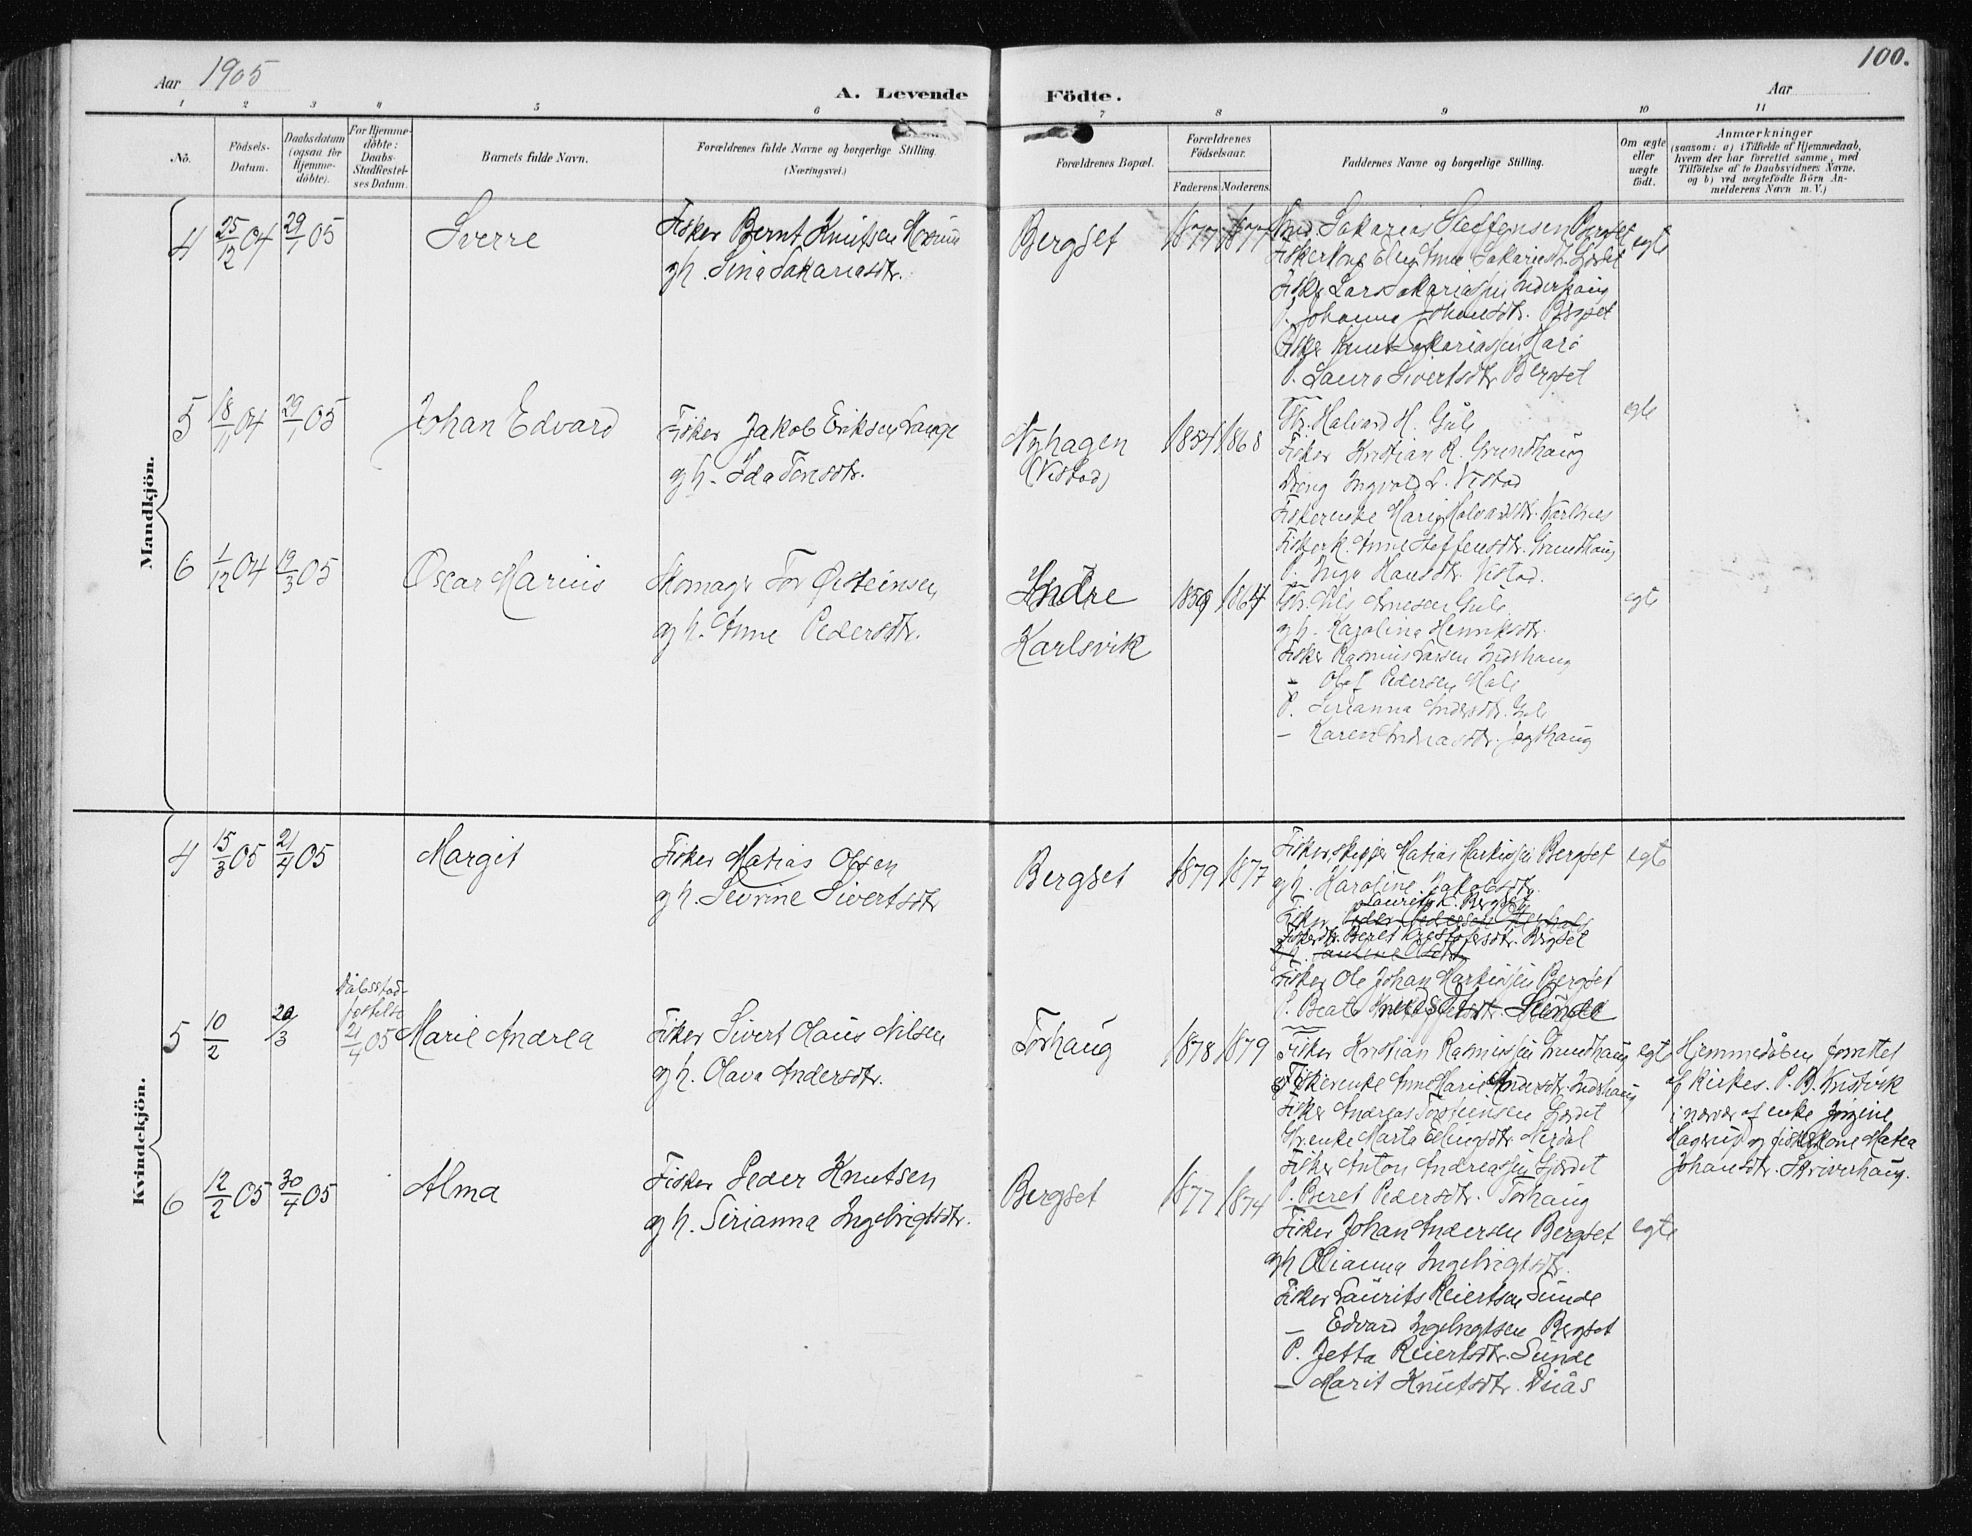 Aar 1905
A. Levende Födte.
Aar
100.
1 2 3 4 5 6 7 8 9 10 11
No.
Födsels-Datum.
Daabsdatum (ogsaa for Hjemmedöbte).
For Hjemmedöbte: Daabs-Stadfæstelses Datum.
Barnets fulde Navn.
Forældrenes fulde Navne og borgerlige Stilling. (Næringsvei.)
Forældrenes Bopæl.
Forældrenes Födselsaar.
Faderens. Moderens.
Faddernes Navne og borgerlige Stilling.
Om ægte eller uægte födt.
Anmærkninger
(saasom: a) i Tilfælde af Hjemmedaab,
hvem der har forrettet samme, med
Tilföielse af to Daabsvidners Navne,
og b) ved uægtefödte Börn An-
melderens Navn m. V.)
Mandkjön.
4 25/12 04 29/1 05 Sverre
Fisker Bernt Knutsen
gh. Sina Sakariasdtr.
Bergset 1877 1877
Sakarias Steffensen Bergset
Fisker Lars Sakariassen Inderhaug
P. Johanna Johansdtr. Bergset
Fisker Knut Sakariassen Harö
P. Laura Sivertsdtr. Bergset
egte
5 18/11 04 29/1 05 Johan Edvard
Fisker Jakob Eriksen Lange
gh. Ida Torsdtr.
Nyhagen
(Vistad)
1854 1868
Gbr. Halvard H. Gule
Fisker Kristian R. Grundhaug
Dreng Ingvald L. Vistad
Fiskerenke Marie Halvardsdtr. Karlsnes
Fiskerk. Anne Steffensdtr. Grundhaug
P. Inga Hansdtr. Vistad.
egte
6 1/12 04 19/3 05 Oscar Marius
Skomager Tor Östeinsen
gh. Anne Pedersdtr.
Indre
Karlsvik
1859 1864
Gbr. Nils Arnesen Gule
gh. Karolina Henriksdtr.
Fisker Rasmus Larsen Inderhaug
— Olaf Pedersen Hals
P. Serianna Andersdtr. Gule
— Karen Andreasdtr. Jegthaug
egte
Kvindekjön.
4 15/3 05 21/4 05 Margit
Fisker Matias Olsen
gh. Sevrine Sivertsdtr
Bergset 1879 1877
Fiskerskipper Matias Markussen Bergset
gh. Karoline Jakobsdtr.
Laurits K. Bergset
Fisker
Fiskerdtr. Beret Kristofersdtr. Bergset
Fisker Ole Johan Markussen Bergset
P. Beate Sunde
egte
5 10/2 20/3
Dåbsstad-
festelse
21/4 05
Marie Andrea
Fisker Sivert Olaus Nilsen
gh. Olava Andersdtr.
Torhaug 1878 1879
Fisker Kristian Rasmussen Grundhaug
Fiskerenke Anne Marie Andersdtr. Inderhaug
Fisker Andreas Torsteinsen Gjerdet
Gbr.enke Marta Ellingsdtr. Nerdal
Fisker Anton Andreassen Gjerdet
P. Beret Pedersdtr. Torhaug
egte
Hjemmedåben forrettet
af Kirkes. P. B. Kristvik
i nærvær af enke Jörgine
Hagerup og fiskerkone Matea
Johansdtr. Skriverhaug.
6 12/2 05 30/4 05 Alma
Fisker Peder Knutsen
gh. Serianna Ingebrigtsdtr.
Bergset 1877 1874
Fisker Johan Andersen Bergset
gh Olianna Ingebrigtsdtr.
Fisker Laurits Reiertsen Sunde
— Edvard Ingebrigtsen Bergset
P. Jetta Reiertsdtr. Sunde
— Marit Knutsdtr. Duås
egte